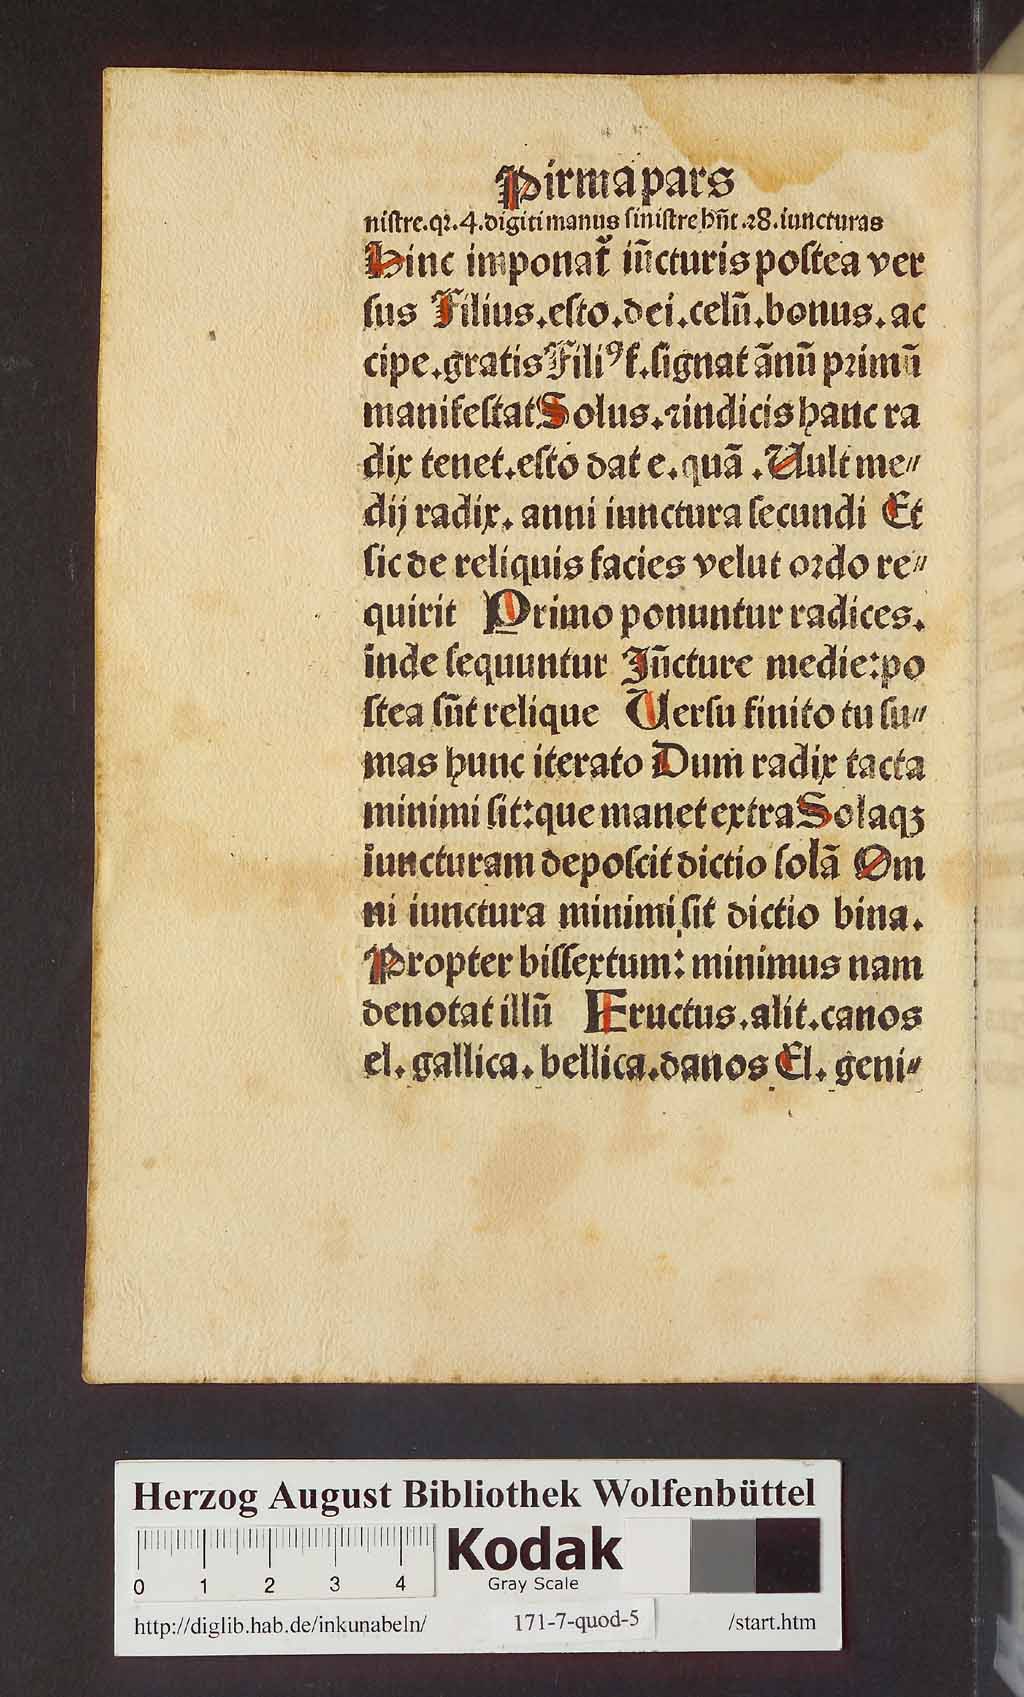 Pirma pars
niſtre.qꝛ.4.digiti manus ſiniſtre hñt.28.iuncturas
Hinc imponat᷑ iũcturis poſtea ver
ſus Filius.eſto.dei.celũ.bonus.ac
cipe.gratis Filiꝰ f.ſignat ãnũ pꝛimũ
manifeſtat Solus.ꝛindicis hanc ra
dix tenet.eſto dat e.quã .Uult me⸗
dij radix. anni iunctura ſecundi Et
ſic de reliquis facies velut oꝛdo re⸗
quirit Primo ponuntur radices.
inde ſequuntur Jũcture medie:po
ſtea ſũt relique Verſu finito tu ſu⸗
mas hunc iterato Dum radix tacta
minimi ſit:que manet extra Solaqꝫ
iuncturam depoſcit dictio ſolã Om
ni iunctura minimi ſit dictio bina.
Propter biſſextum: minimus nam
denotat illũ Fructus.alit.canos
el. gallica. bellica.danos El. geni⸗
Herzog August Bibliothek Wolfenbüttel
0 1 2 3 4
Kodak
Gray Scale
http://diglib.hab.de/inkunabeln/ 171-7-quod-5 /start.htm